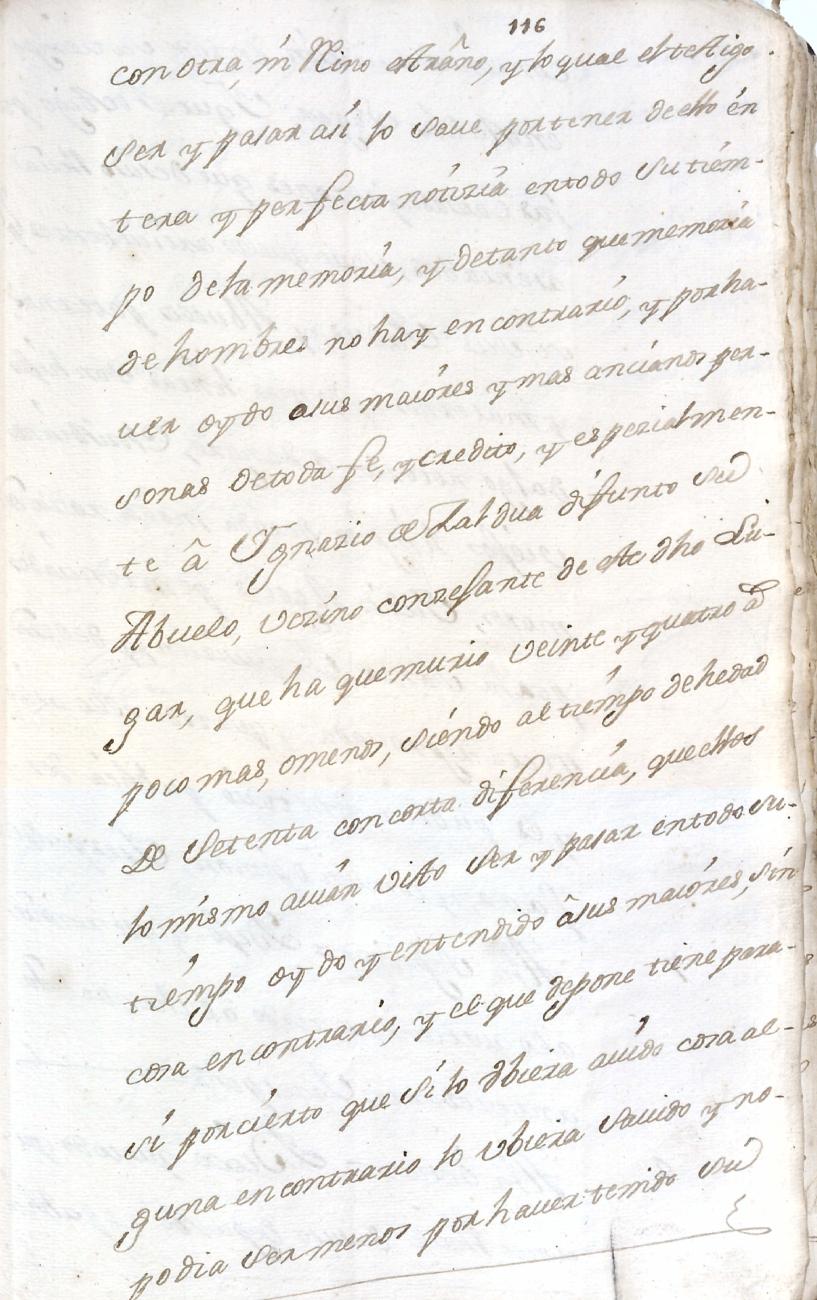 116
con otra, ni Reino estraño, y lo qual el testigo
ser y pasar asi lo save por tener de ello en
tera y perfecta notizia en todo su tiem-
po de la memoria, y de tanto que memoria
de hombres no hay en contrario, y por ha-
ver oydo a sus maiores y mas ancianos per-
sonas de toda fe, y credito, y espezialmen-
te â Ygnazio de Zaldua difunto su
Abuelo, vezino conzesante de este dho Lu-
gar, que ha que murio veinte y quatro a^s
poco mas, o menos, siendo al tiempo de hedad
De setenta con corta diferencia, que ellos
lo mismo avian visto ser y pasar en todo su
tiempo oydo y entendido â sus maiores, sin
cosa en contrario, y el que depone tiene para
si por cierto que si lo obiera avido cosa al-
guna en contrario lo ubiera savido y no
podia ser menos por haver tenido su